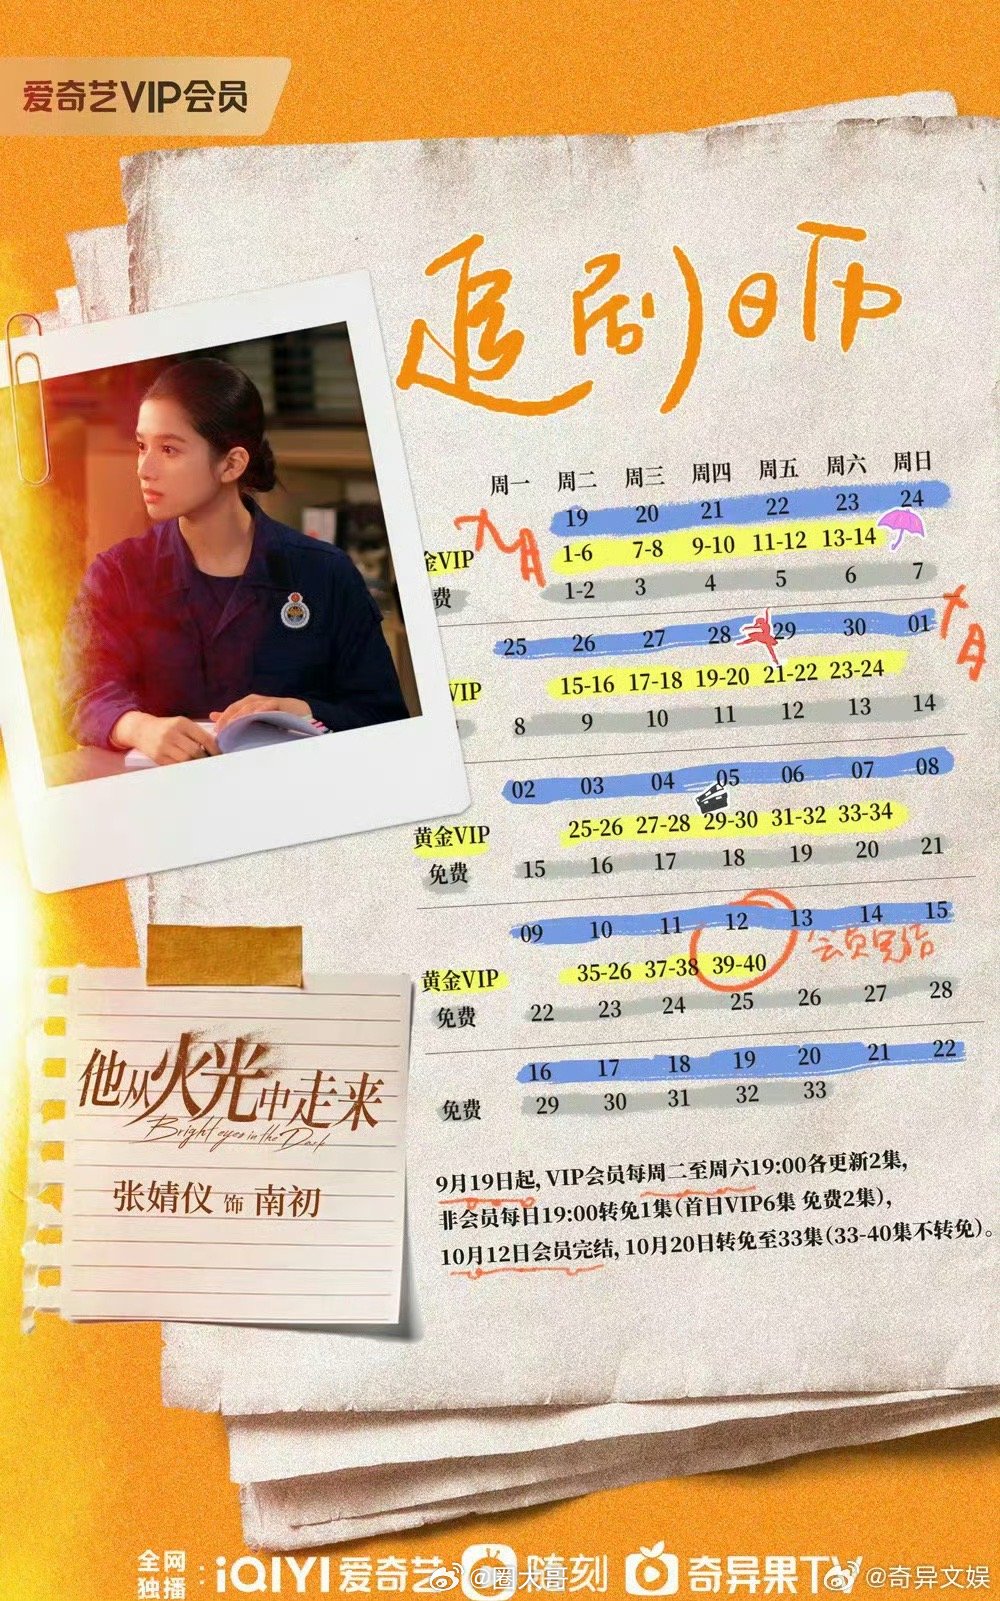 爱奇艺VIP会员
追剧日历
周一 周二 周三 周四 周五 周六 周日
九月
19 20 21 22 23 24
金VIP 1-6 7-8 9-10 11-12 13-14
费 1-2 3 4 5 6 7
十月
25 26 27 28 29 30 01
VIP 15-16 17-18 19-20 21-22 23-24
8 9 10 11 12 13 14
02 03 04 05 06 07 08
黄金VIP 25-26 27-28 29-30 31-32 33-34
免费 15 16 17 18 19 20 21
09 10 11 12 13 14 15
会员完结
黄金VIP 35-26 37-38 39-40
免费 22 23 24 25 26 27 28
16 17 18 19 20 21 22
免费 29 30 31 32 33
他从火光中走来
Bright eyes in the Dark
张婧仪 饰 南初
9月19日起, VIP会员每周二至周六19:00各更新2集,
非会员每日19:00转免1集(首日VIP6集 免费2集),
10月12日会员完结, 10月20日转免至33集(33-40集不转免)。
全网独播: iQIYI 爱奇艺 随刻 奇异果TV
@圈大哥 @奇异文娱